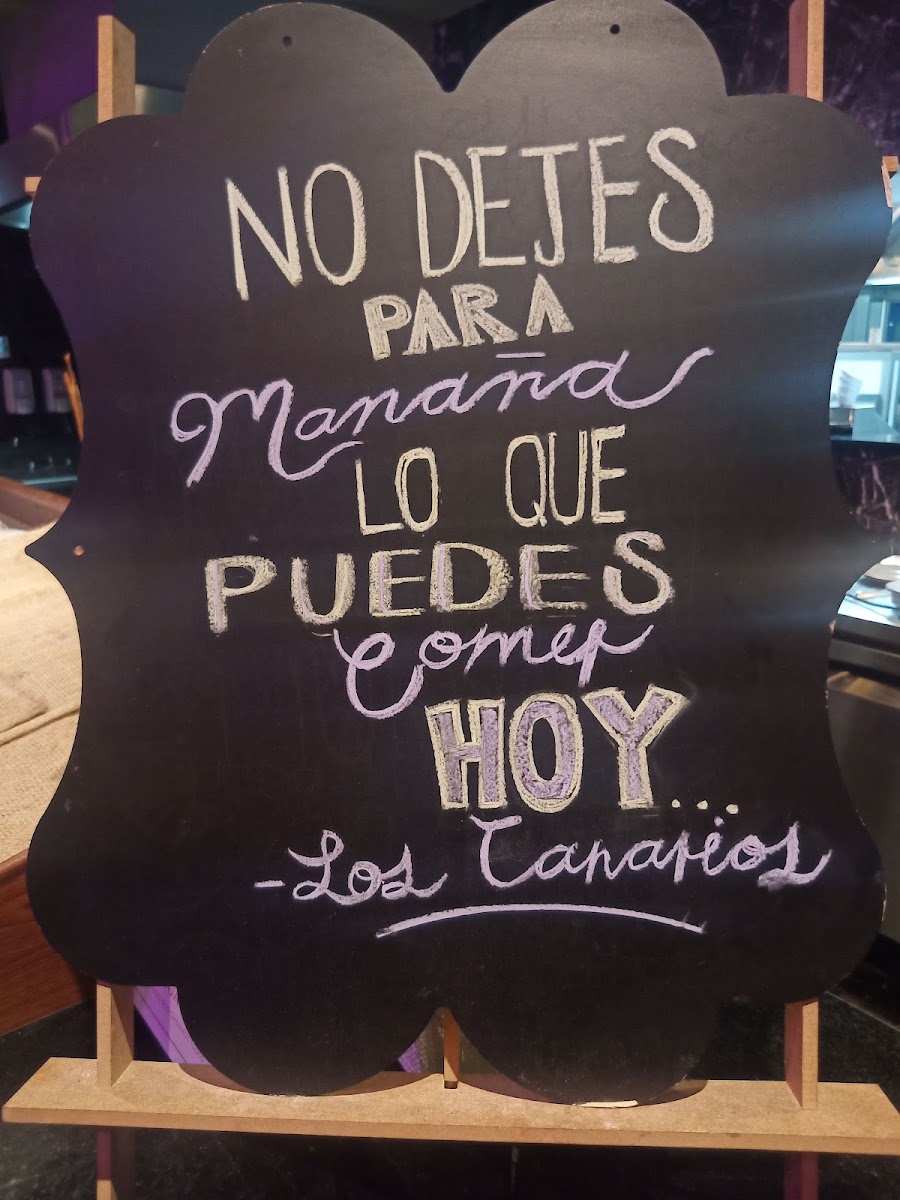 NO DEJES
PARA
Manaña
LO QUE
PUEDES
Comer
HOY...
-Los Canarios